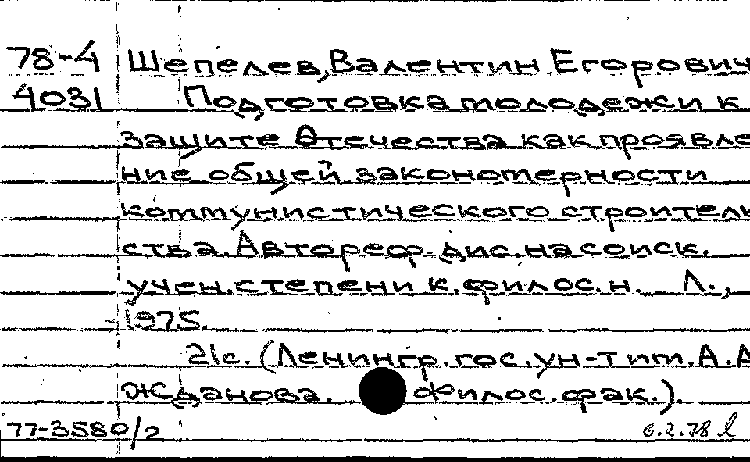 78-4 Шепелев, Валентин Егорович
4031 Подготовка молодежи к
защите Отечества как проявле
ние общей закономерности
коммунистического строитель
ства. Автореф. дис. на соиск.
учен. степени к. филос. н. Л.,
1975.
21с. (Ленингр. гос. ун-т им. А.А
Жданова. Филос. фак.).
77-3580/2 6.2.78